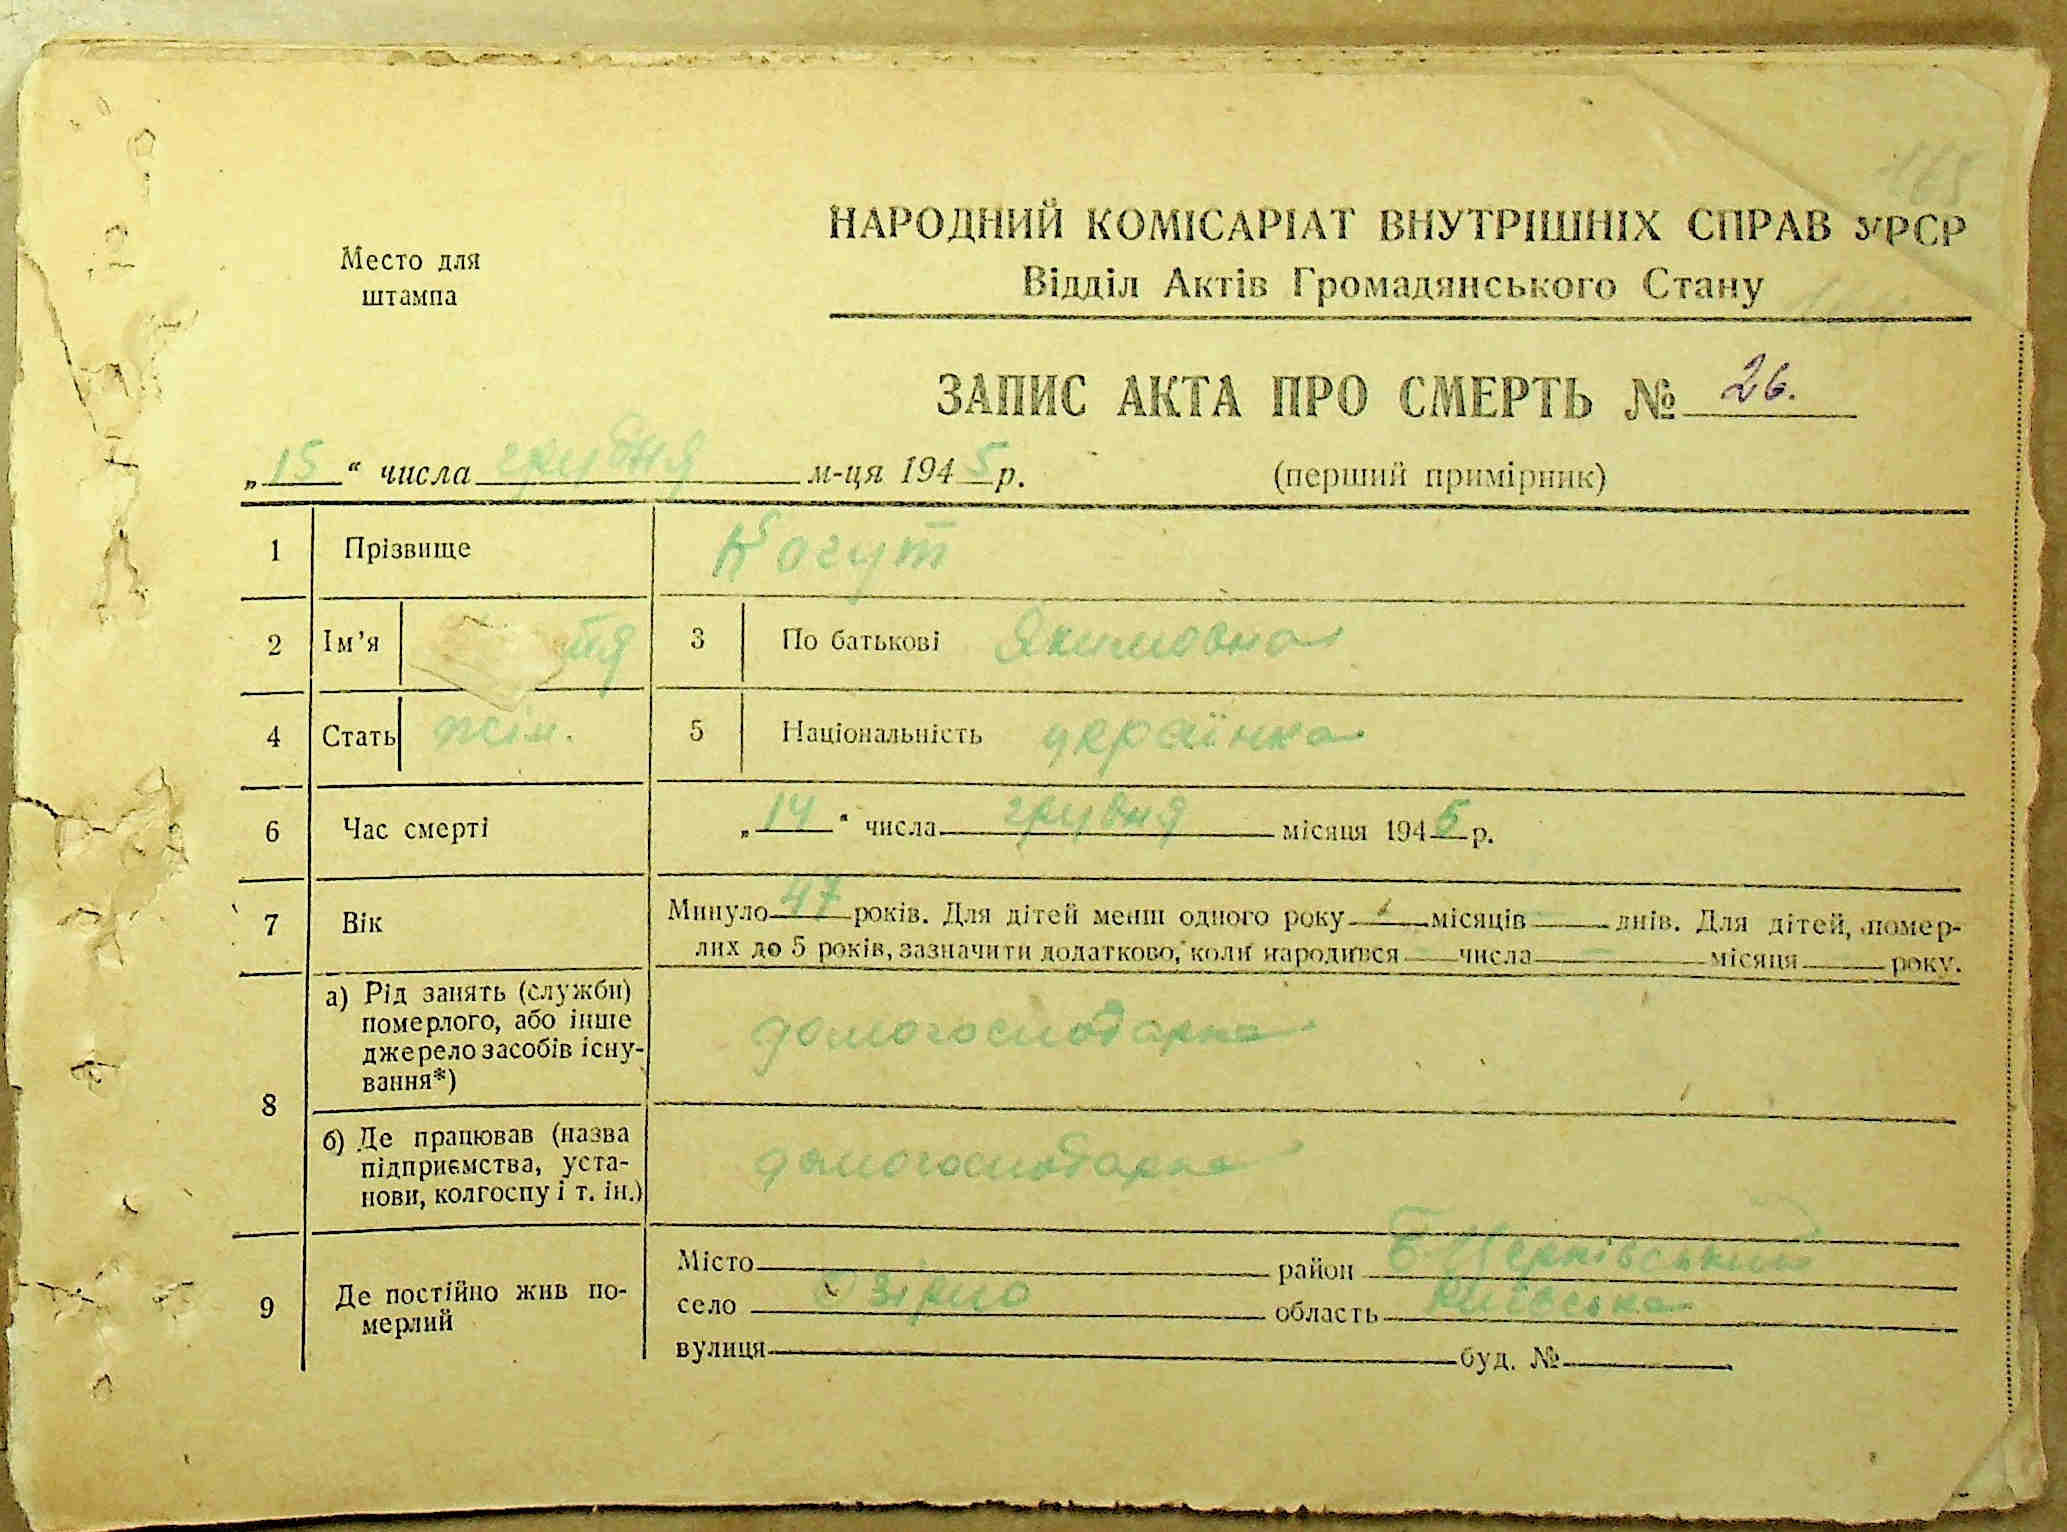 Место для
штампа
НАРОДНИЙ КОМІСАРІАТ ВНУТРІШНІХ СПРАВ УРСР
Відділ Актів Громадянського Стану
ЗАПИС АКТА ПРО СМЕРТЬ № 26.
„15“ числа грудня м-ця 1945 р. (перший примірник)
1 Прізвище Когут
2 Ім’я 3 По батькові Якимовна
4 Стать жін. 5 Національність українка
6 Час смерті „14“ числа грудня місяця 1945 р.
7 Вік Минуло 47 років. Для дітей менш одного року місяців днів. Для дітей, помер-
лих до 5 років, зазначити додатково, коли народився числа місяця року.
8 а) Рід занять (служби)
померлого, або інше
джерело засобів існу-
вання*) домогосподарка
б) Де працював (назва
підприємства, уста-
нови, колгоспу і т. ін.) домогосподарка
9 Де постійно жив по-
мерлий
Місто район Б Церківський
село Озірно область Київська
вулиця буд. №